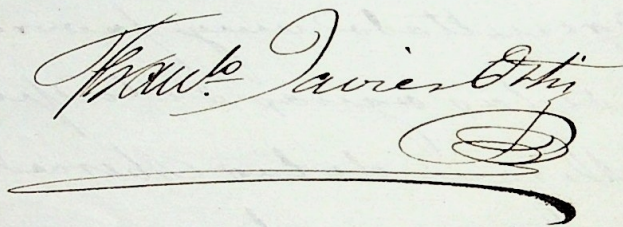 Franco. Javier Ortiz